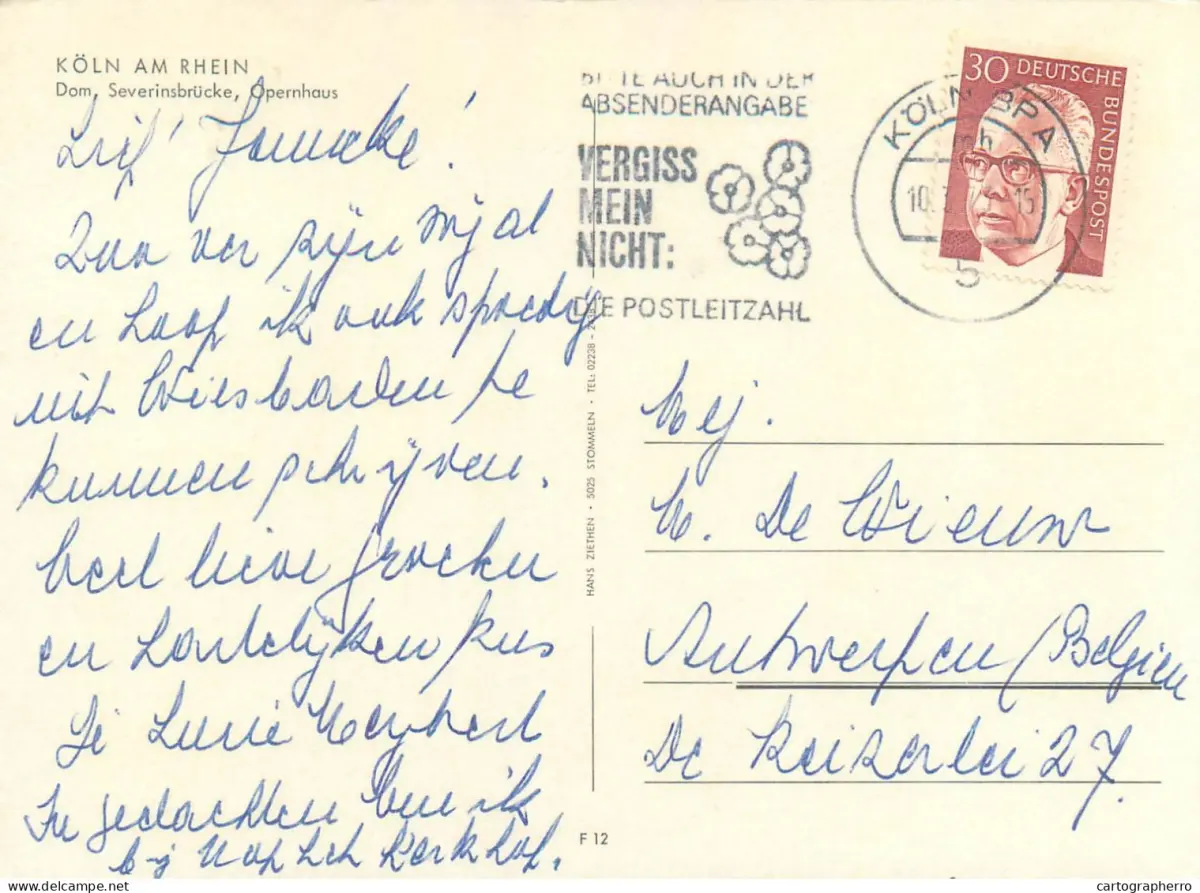 KÖLN AM RHEIN
Dom, Severinsbrücke, Opernhaus
Lief' Janneke!
zijn wij al
en hoop ik ook spoedig
uit Wiesbaden te
kunnen schrijven.
Veel lieve groeten
en hartelijken kus
In gedachten ben ik
bij Kerkhof.
BITTE AUCH IN DER
ABSENDERANGABE
VERGISS
MEIN
NICHT:
DIE POSTLEITZAHL
KÖLN BPA
mh
10. 15
5
30 DEUTSCHE
BUNDESPOST
HANS ZIETHEN · 5025 STOMMELN · TEL: 02238 -
Mej.
M. De
Antwerpen / Belgien
De Keiserlei 27.
F 12
delcampe.net
cartographerro